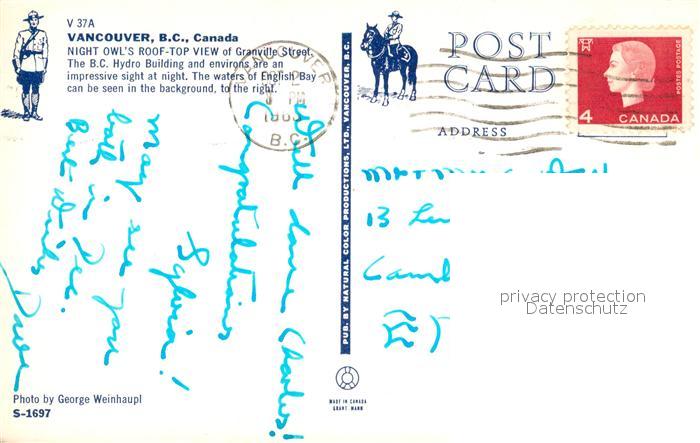 V 37A
VANCOUVER, B.C., Canada
NIGHT OWL'S ROOF-TOP VIEW of Granville Street.
The B.C. Hydro Building and environs are an
impressive sight at night. The waters of English Bay
can be seen in the background, to the right.
VANCOUVER
PM
B.C.
POST
CARD
ADDRESS
POSTES POSTAGE
4 CANADA
Well done Charles!
Congratulations
Sylvia!
May see you
both in Dec.
Best Wishes
Dave
PUB. BY NATURAL COLOR PRODUCTIONS, LTD., VANCOUVER, B.C.
13
privacy protection
Datenschutz
Photo by George Weinhaupl
S-1697
MADE IN CANADA
GRANT MANN